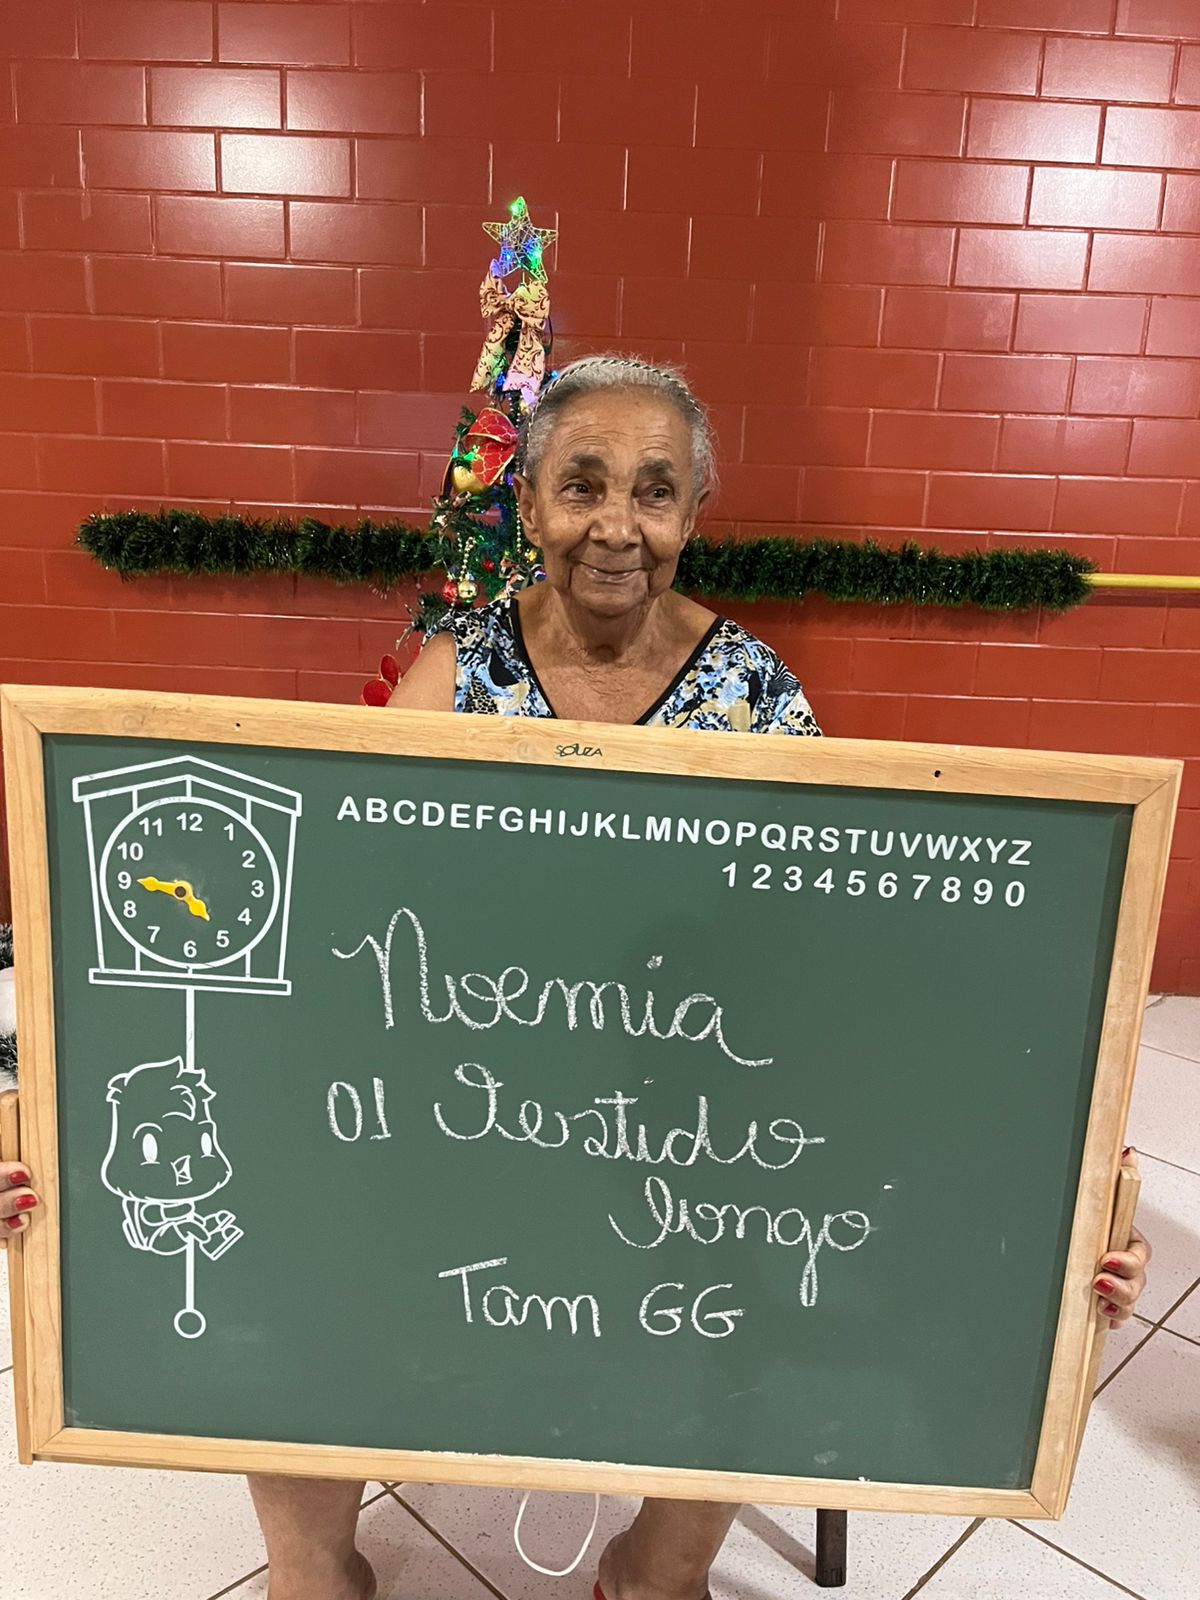 SOUZA
ABCDEFGHIJKLMNOPQRSTUVWXYZ
1 2 3 4 5 6 7 8 9 0
12
1
2
3
4
5
6
7
8
9
10
11
Noemia
01 Vestido
longo
Tam GG